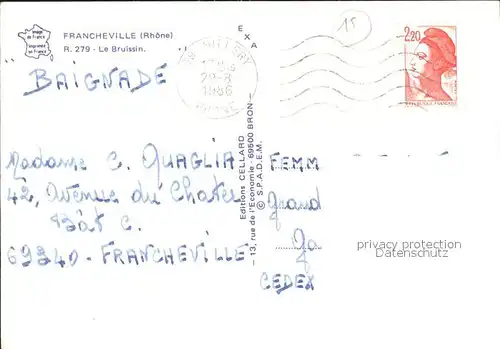 Image
de France
Imprimée
en France
FRANCHEVILLE (Rhône)
R. 279 - Le Bruissin.
BAIGNADE
EXA
15
29-8
1986
2,20
REPUBLIQUE FRANÇAISE
Editions CELLARD
13, rue de l'Economie - 69500 BRON -
© S.P.A.D.E.M.
Madame C. QUAGLIA
42, Avenue du Chater
Bât C.
69340 - FRANCHEVILLE
FEMM
Grand
CEDEX
privacy protection
Datenschutz